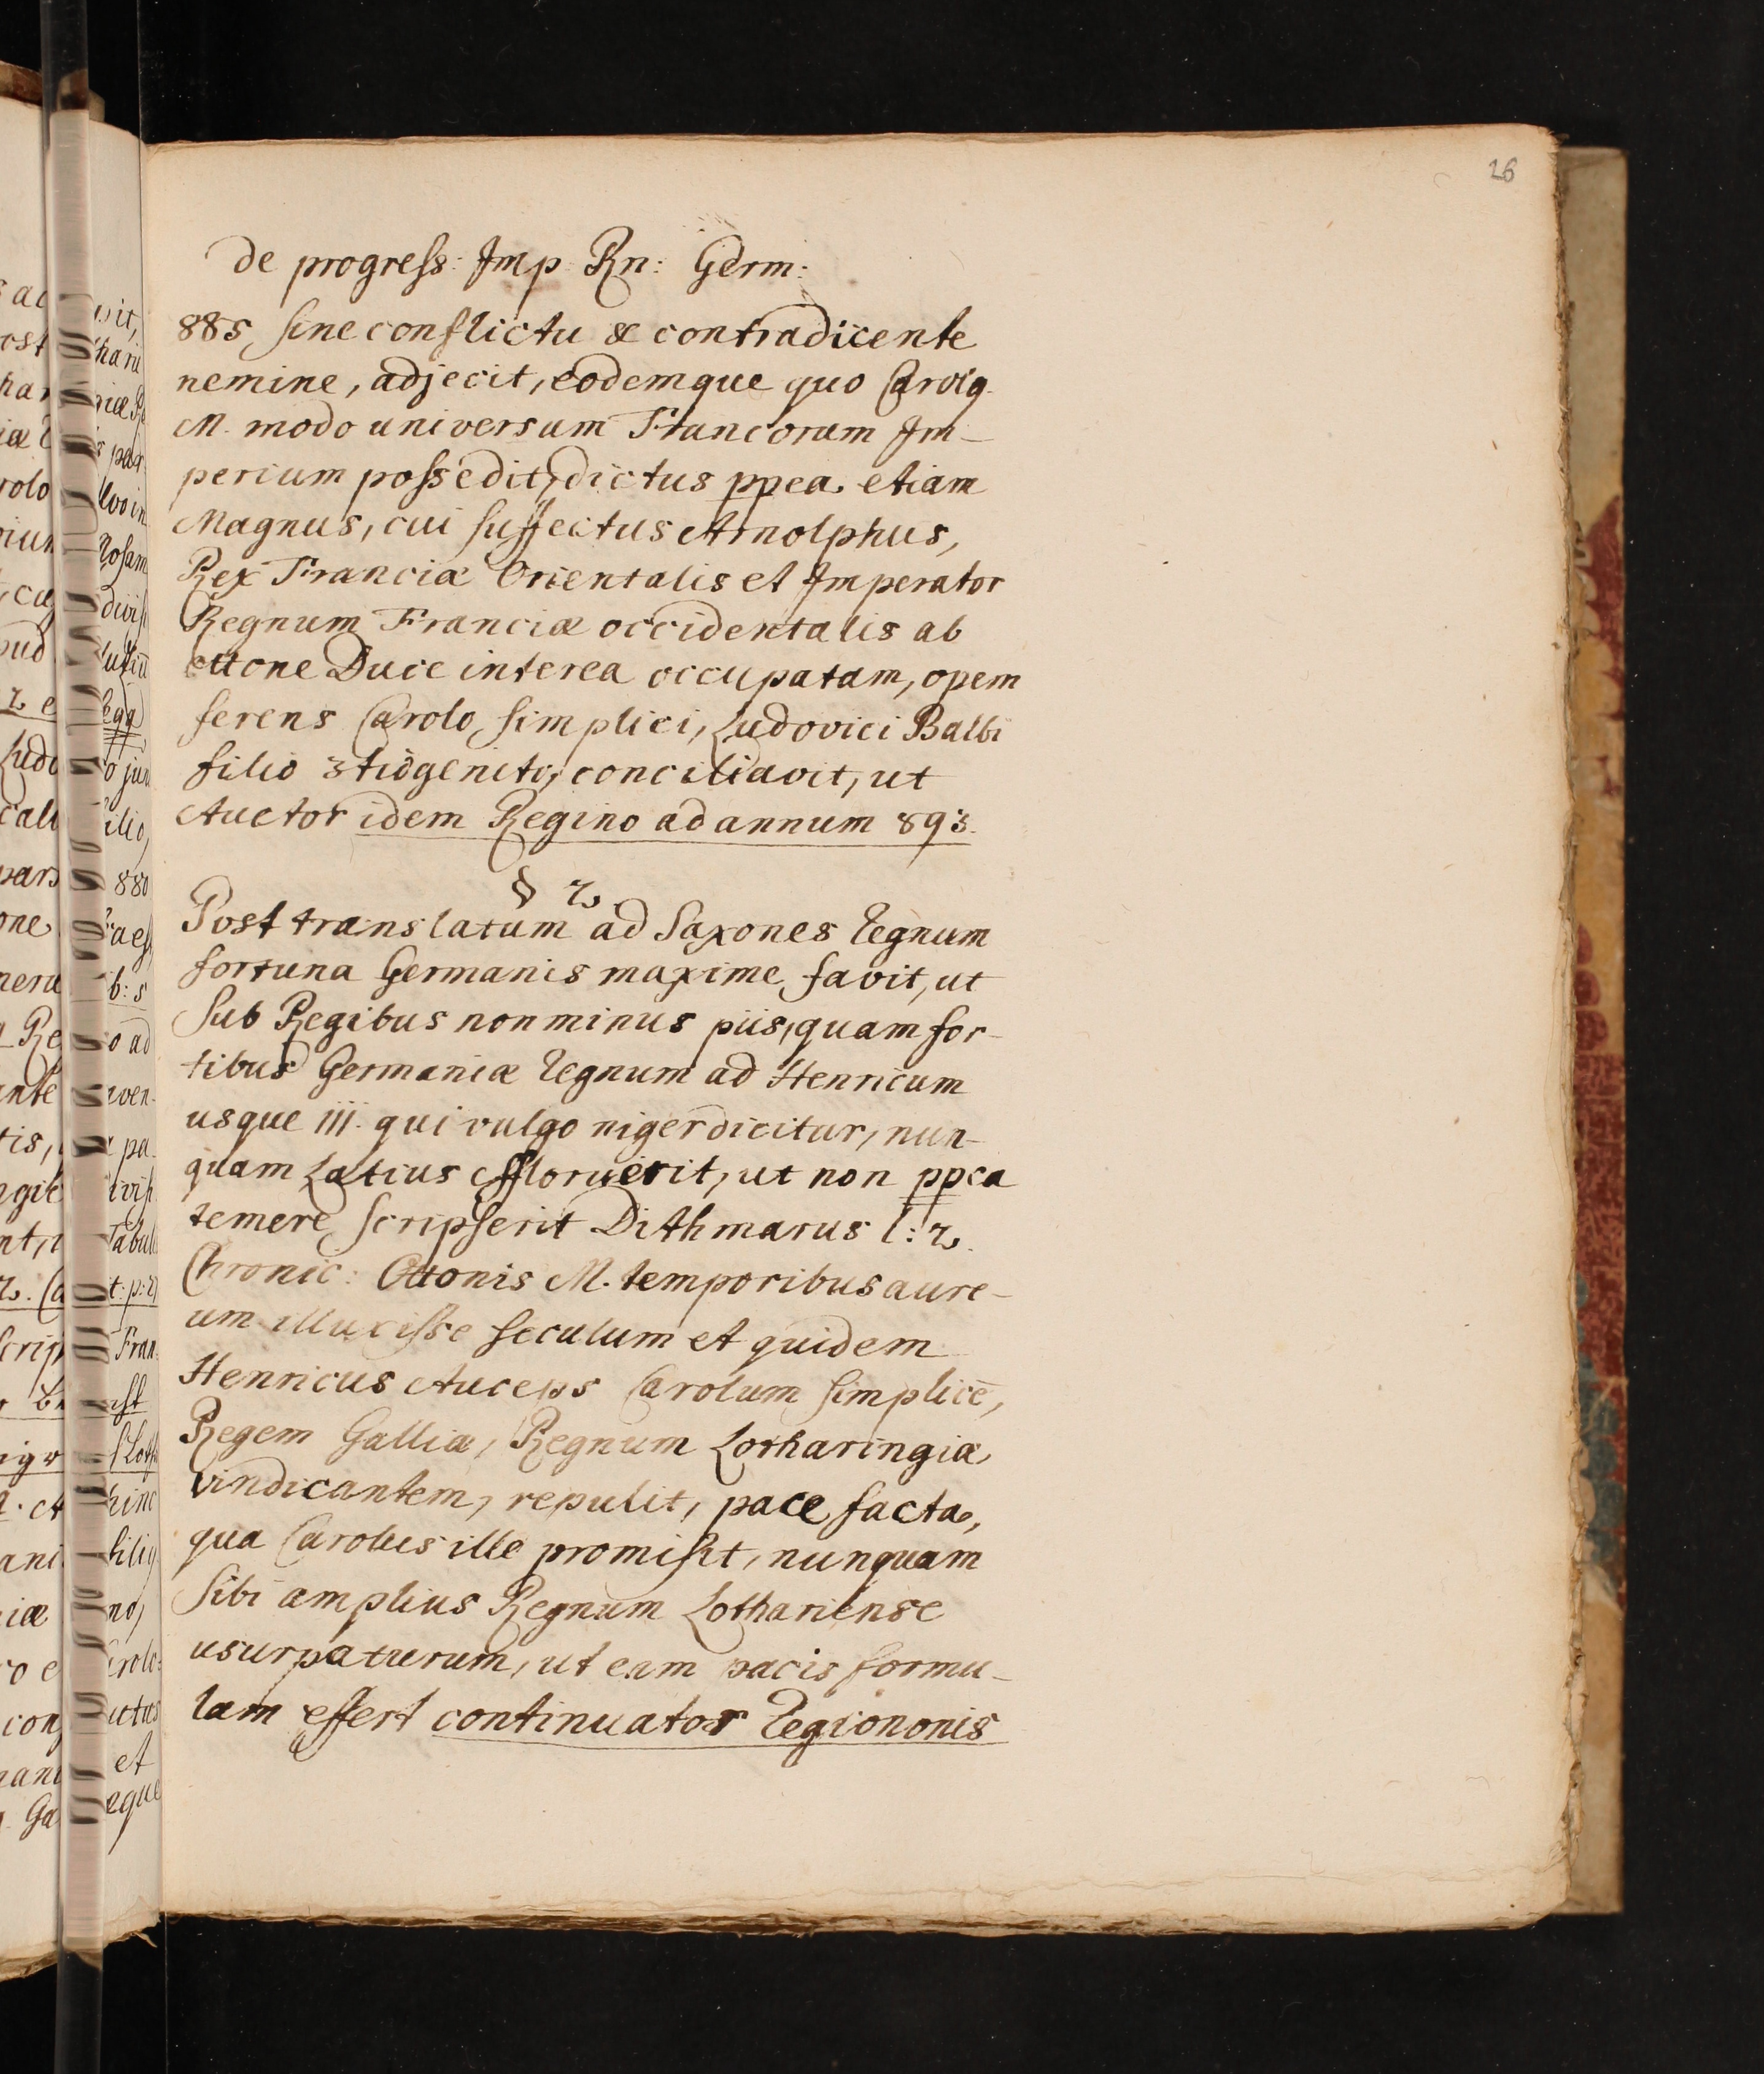 26
de progress: Imp: Rn: Germ:
885, sine conflictu & contradicente
nemine, adjecit, eodemque quo Carolg
M. modo universum Francorum Im-
perium possedit, dictus ppea etiam
Magnus, cui suffectus Arnolphus,
Rex Franciæ Orientalis et Imperator
Regnum Franciæ occidentalis ab
ottone Duce interea occupatam, opem
ferens Carolo simplici, Ludovici Balbi
filio 3tiogenito, conciliavit, ut
Auctor idem Regino ad annum 893.
§ 2.
Post translatum ad Saxones Regnum
fortuna Germanis maxime favit, ut
sub Regibus non minus piis, quam for-
tibus Germaniæ Regnum ad Henricum
usque III. qui vulgo niger dicitur, nun-
quam Latius effloruerit, ut non ppea
temere scripserit Dithmarus l: 2.
Chronic: Ottonis M. temporibus aure-
um illuxisse seculum et quidem
Henricus Auceps Carolum simplicē,
Regem Galliæ, Regnum Lotharingiæ
vindicantem, repulit, pace facta,
qua Carolus ille promisit, nunquam
sibi amplius Regnum Lothariense
usurpaturum, ut eam pacis formu-
lam effert continuator Regiononis